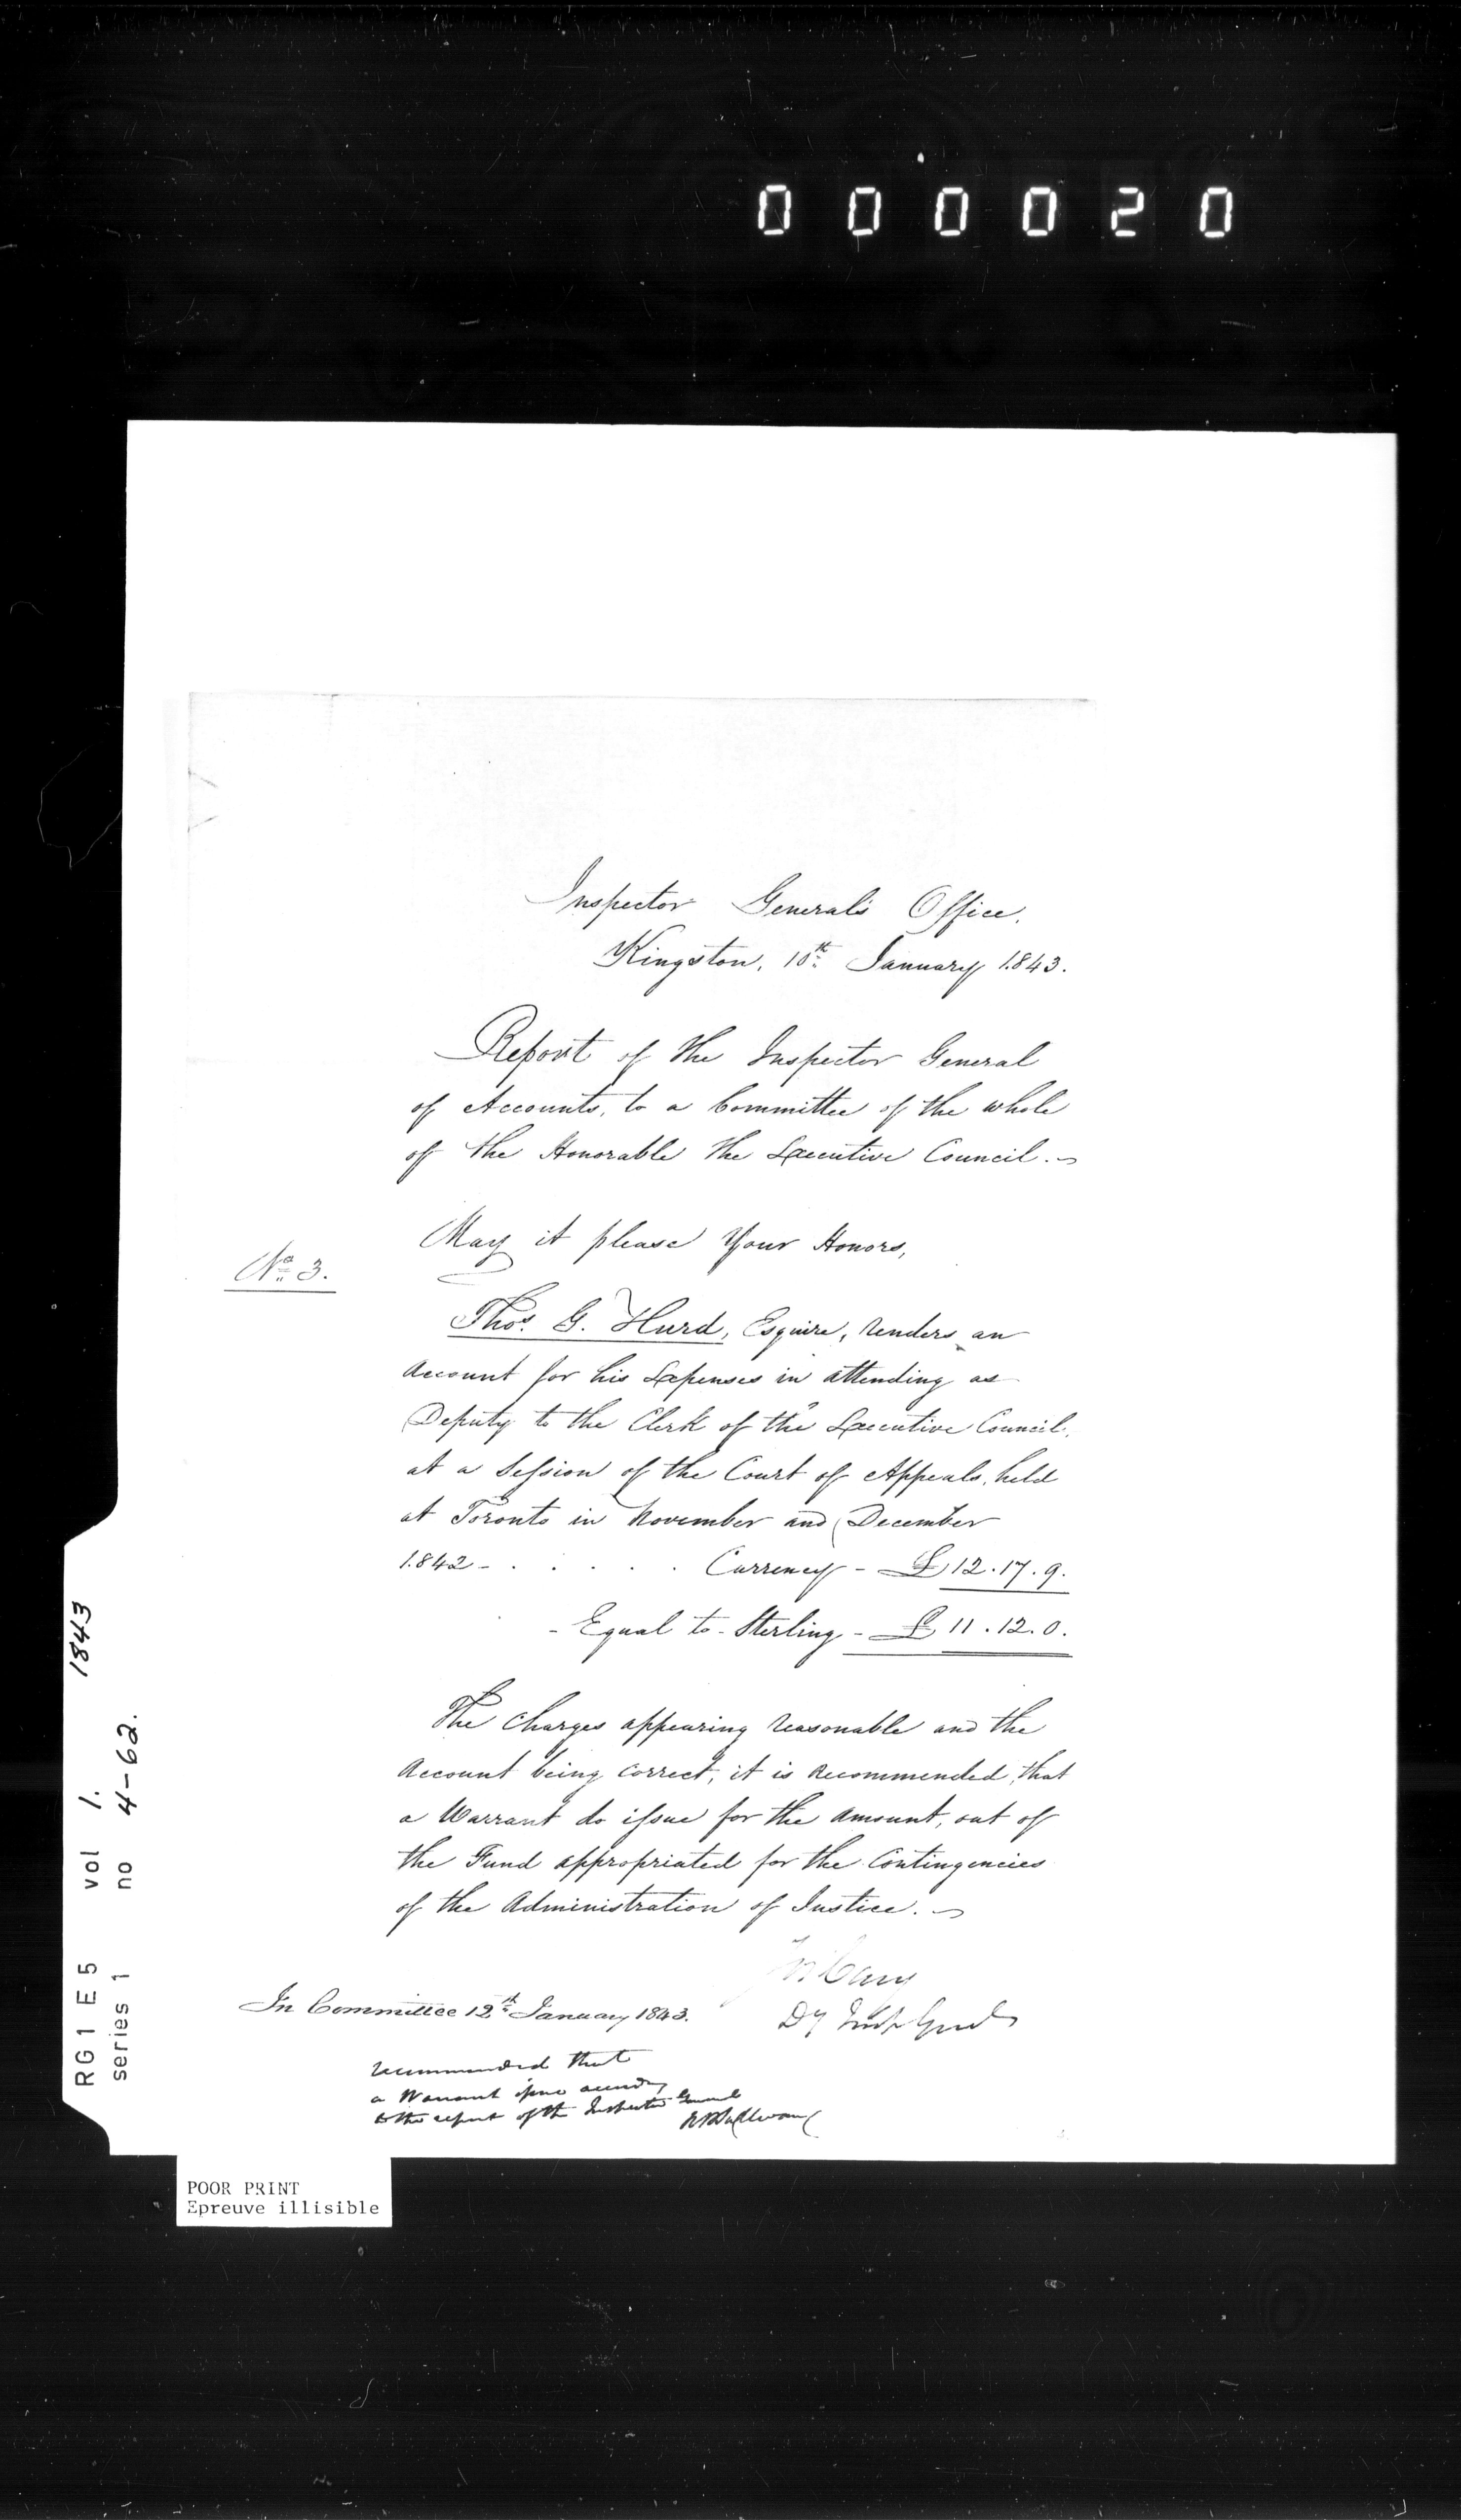 000020
Inspector General's Office.
Kingston, 10th January 1843.
Report of the Inspector General
of Accounts, to a Committee of the whole
of the Honorable the Executive Council.
May it please Your Honors,
No 3.
Thos. G. Hurd, Esquire, renders an
account for his Expenses in attending as
Deputy to the Clerk of the Executive Council,
at a Session of the Court of Appeals, held
at Toronto in November and December
1842 - . . . . . Currency - £12.17.9.
- Equal to - Sterling - £ 11.12.0.
The charges appearing reasonable and the
Account being correct, it is recommended, that
a Warrant do issue for the amount, out of
the Fund appropriated for the Contingencies
of the Administration of Justice.
Cary
Dy Insp Genl
In Committee 12th January 1843.
recommended that
a Warrant issue according
to the report of the Inspector General
RBSullivan
RG1 E5 vol 1. 1843
series 1 no 4-62.
POOR PRINT
Epreuve illisible